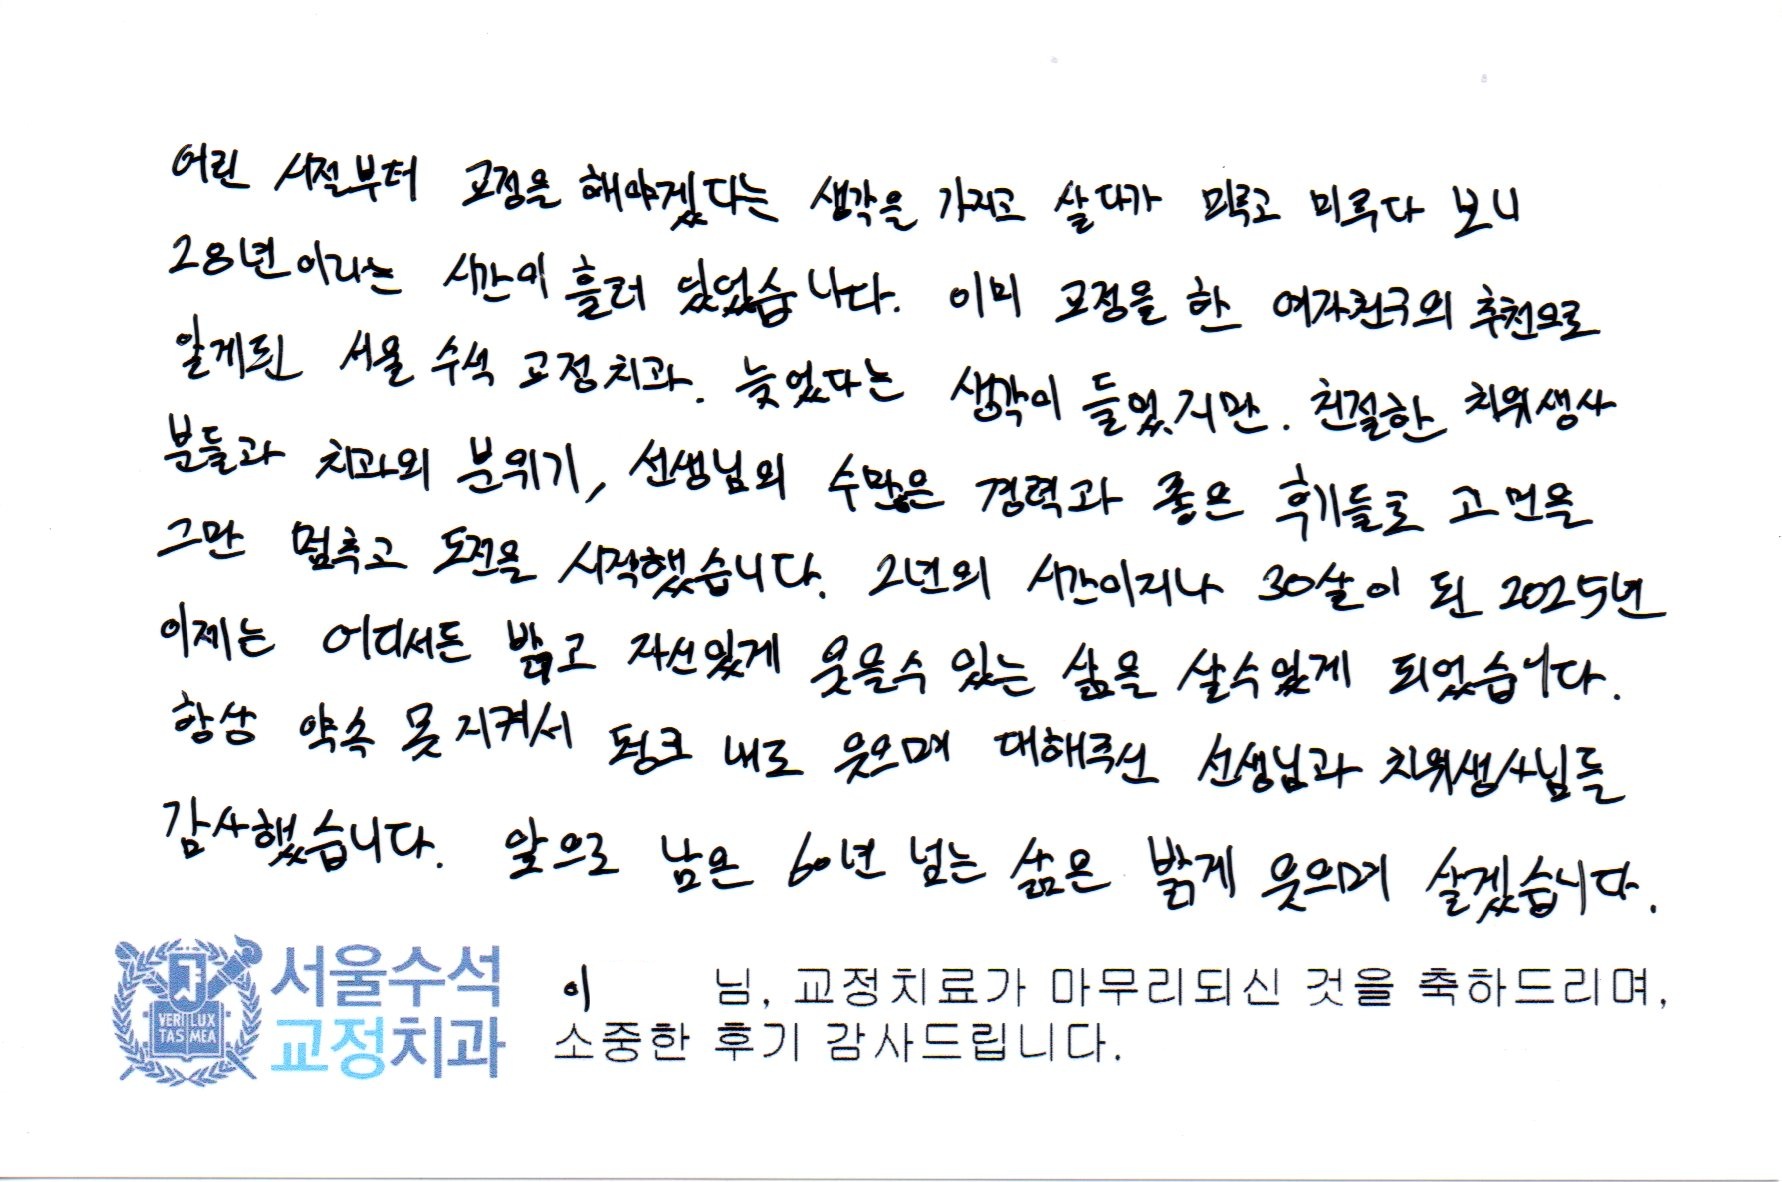 어린 시절부터 교정을 해야겠다는 생각을 가지고 살다가 미루고 미루다 보니
28년이라는 시간이 흘러 있었습니다. 이미 교정을 한 여자친구의 추천으로
알게된 서울 수석 교정치과. 늦었다는 생각이 들었지만. 친절한 치위생사
분들과 치과의 분위기, 선생님의 수많은 경력과 좋은 후기들로 고민을
그만 멈추고 도전을 시작했습니다. 2년의 시간이지나 30살이 된 2025년
이제는 어디서든 밝고 자신있게 웃을수 있는 삶을 살수있게 되었습니다.
항상 약속 못지켜서 내로 웃으며 대해주신 선생님과 치위생사님들
감사했습니다. 앞으로 남은 60년 넘는 삶은 밝게 웃으며 살겠습니다.
VERI LUX
TAS MEA
서울수석
교정치과
이 님, 교정치료가 마무리되신 것을 축하드리며,
소중한 후기 감사드립니다.